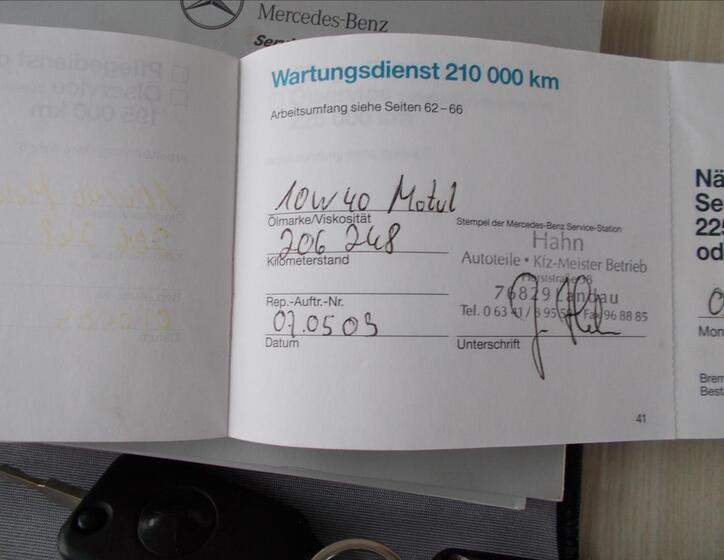 Mercedes-Benz
Wartungsdienst 210 000 km
Arbeitsumfang siehe Seiten 62–66
10W40 Motul
Ölmarke/Viskosität
206 248
Kilometerstand
Rep.-Auftr.-Nr.
07.05 09
Datum
Stempel der Mercedes-Benz Service-Station
Hahn
Autoteile • Kfz-Meister Betrieb
76829 Landau
Tel. 0 63 41 /
Fax 96 88 85
Unterschrift
41
Nä
Se
225
od
Mon
Brem
Best